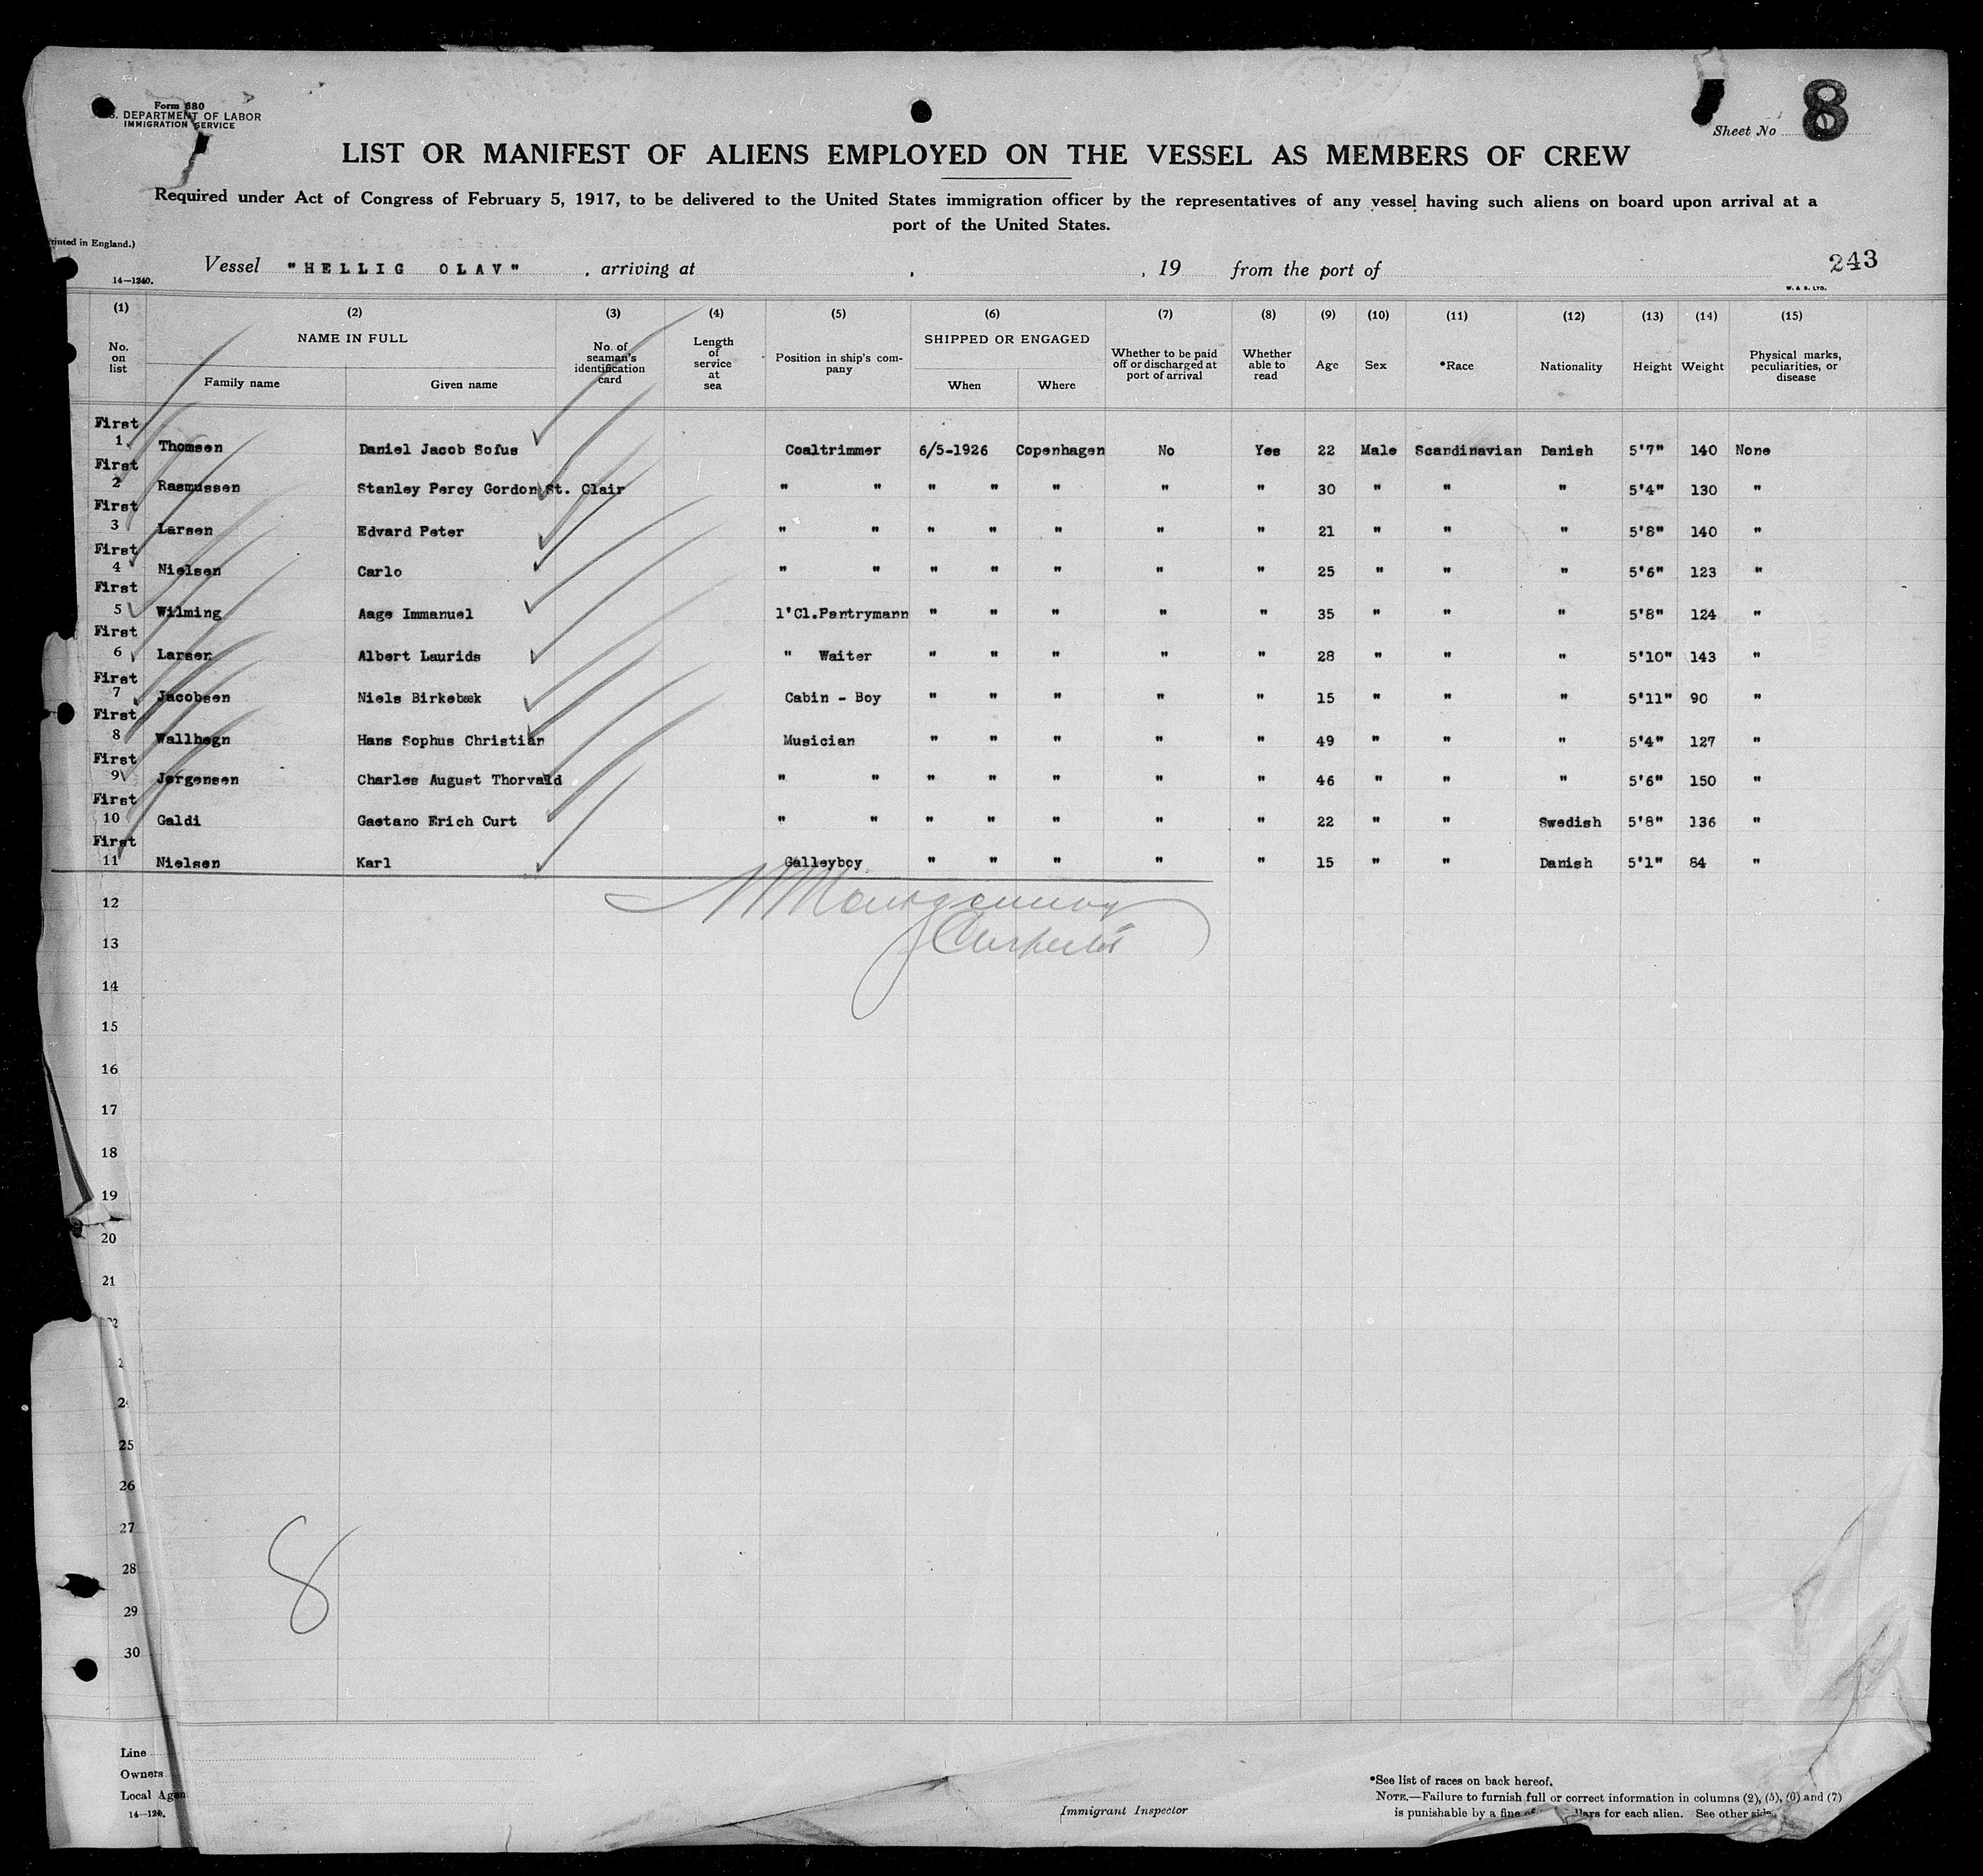 Form 680
S. DEPARTMENT OF LABOR
IMMIGRATION SERVICE
Sheet No 8
LIST OR MANIFEST OF ALIENS EMPLOYED ON THE VESSEL AS MEMBERS OF CREW
Required under Act of Congress of February 5, 1917, to be delivered to the United States immigration officer by the representatives of any vessel having such aliens on board upon arrival at a
port of the United States.
rinted in England.)
14—1240.
Vessel "HELLIG OLAV" , arriving at , , 19 from the port of
243
W. & S. LTD.
(1) (2) (3) (4) (5) (6) (7) (8) (9) (10) (11) (12) (13) (14) (15)
No. on list NAME IN FULL Family name Given name No. of seaman's identification card Length of service at sea Position in ship's company SHIPPED OR ENGAGED When Where Whether to be paid off or discharged at port of arrival Whether able to read Age Sex *Race Nationality Height Weight Physical marks, peculiarities, or disease
First
1 Thomsen Daniel Jacob Sofus Coaltrimmer 6/5-1926 Copenhagen No Yes 22 Male Scandinavian Danish 5'7" 140 None
First
2 Rasmussen Stanley Percy Gordon St. Clair " " " " " " " 30 " " " 5'4" 130 "
First
3 Larsen Edvard Peter " " " " " " " 21 " " " 5'8" 140 "
First
4 Nielsen Carlo " " " " " " " 25 " " " 5'6" 123 "
First
5 Wilming Aage Immanuel 1'Cl.Pantrymann " " " " " 35 " " " 5'8" 124 "
First
6 Larsen Albert Laurids " Waiter " " " " " 28 " " " 5'10" 143 "
First
7 Jacobsen Niels Birkebæk Cabin - Boy " " " " " 15 " " " 5'11" 90 "
First
8 Wallhegn Hans Sophus Christian Musician " " " " " 49 " " " 5'4" 127 "
First
9 Jørgensen Charles August Thorvald " " " " " " " 46 " " " 5'6" 150 "
First
10 Galdi Gaetano Erich Curt " " " " " " " 22 " " Swedish 5'8" 136 "
First
11 Nielsen Karl Galleyboy " " " " " 15 " " Danish 5'1" 84 "
12
13
14
15
16
17
18
19
20
21
25
26
27
28
29
30
8
Line
Owners
Local Agen
Immigrant Inspector
*See list of races on back hereof.
NOTE.—Failure to furnish full or correct information in columns (2), (5), (6) and (7)
is punishable by a fine of llars for each alien. See other side.